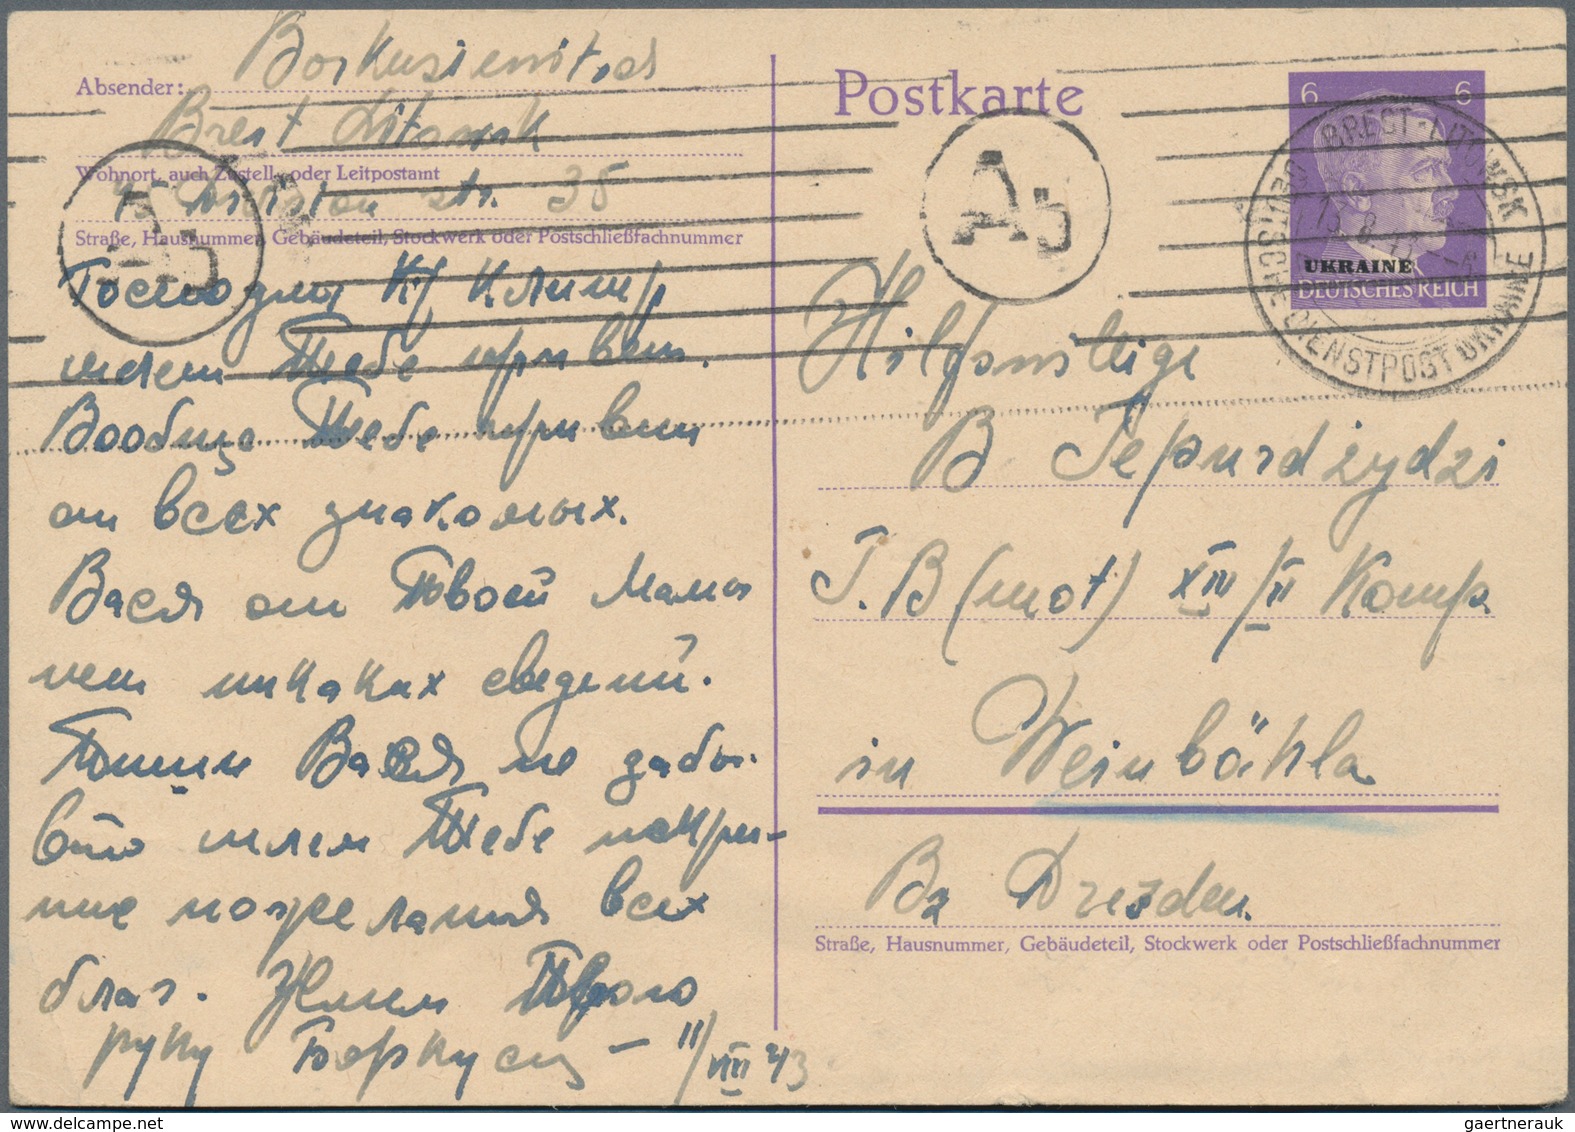 Absender:
Brest Litowsk
Wohnort, auch Zustell- oder Leitpostamt
str. 35
Straße, Hausnummer, Gebäudeteil, Stockwerk oder Postschließfachnummer
шлем Тебе привет.
Вообще Тебе привет
от всех знакомых.
Вася от Твоей Мамы
нет никаких сведений.
Пиши Вася не забы-
шлем Тебе искрен-
ние пожелания всех
благ. Жмем Твою
руку 11/VIII 43
Postkarte
6 6
UKRAINE
DEUTSCHES REICH
BREST-LITOWSK
DEUTSCHE DIENSTPOST UKRAINE
Ab
Ab
Hilfswillige
B
J.B (mot) XIV/II Komp.
in Weinböhla
Bz Dresden.
Straße, Hausnummer, Gebäudeteil, Stockwerk oder Postschließfachnummer
gaertnerauk @ delcampe.net